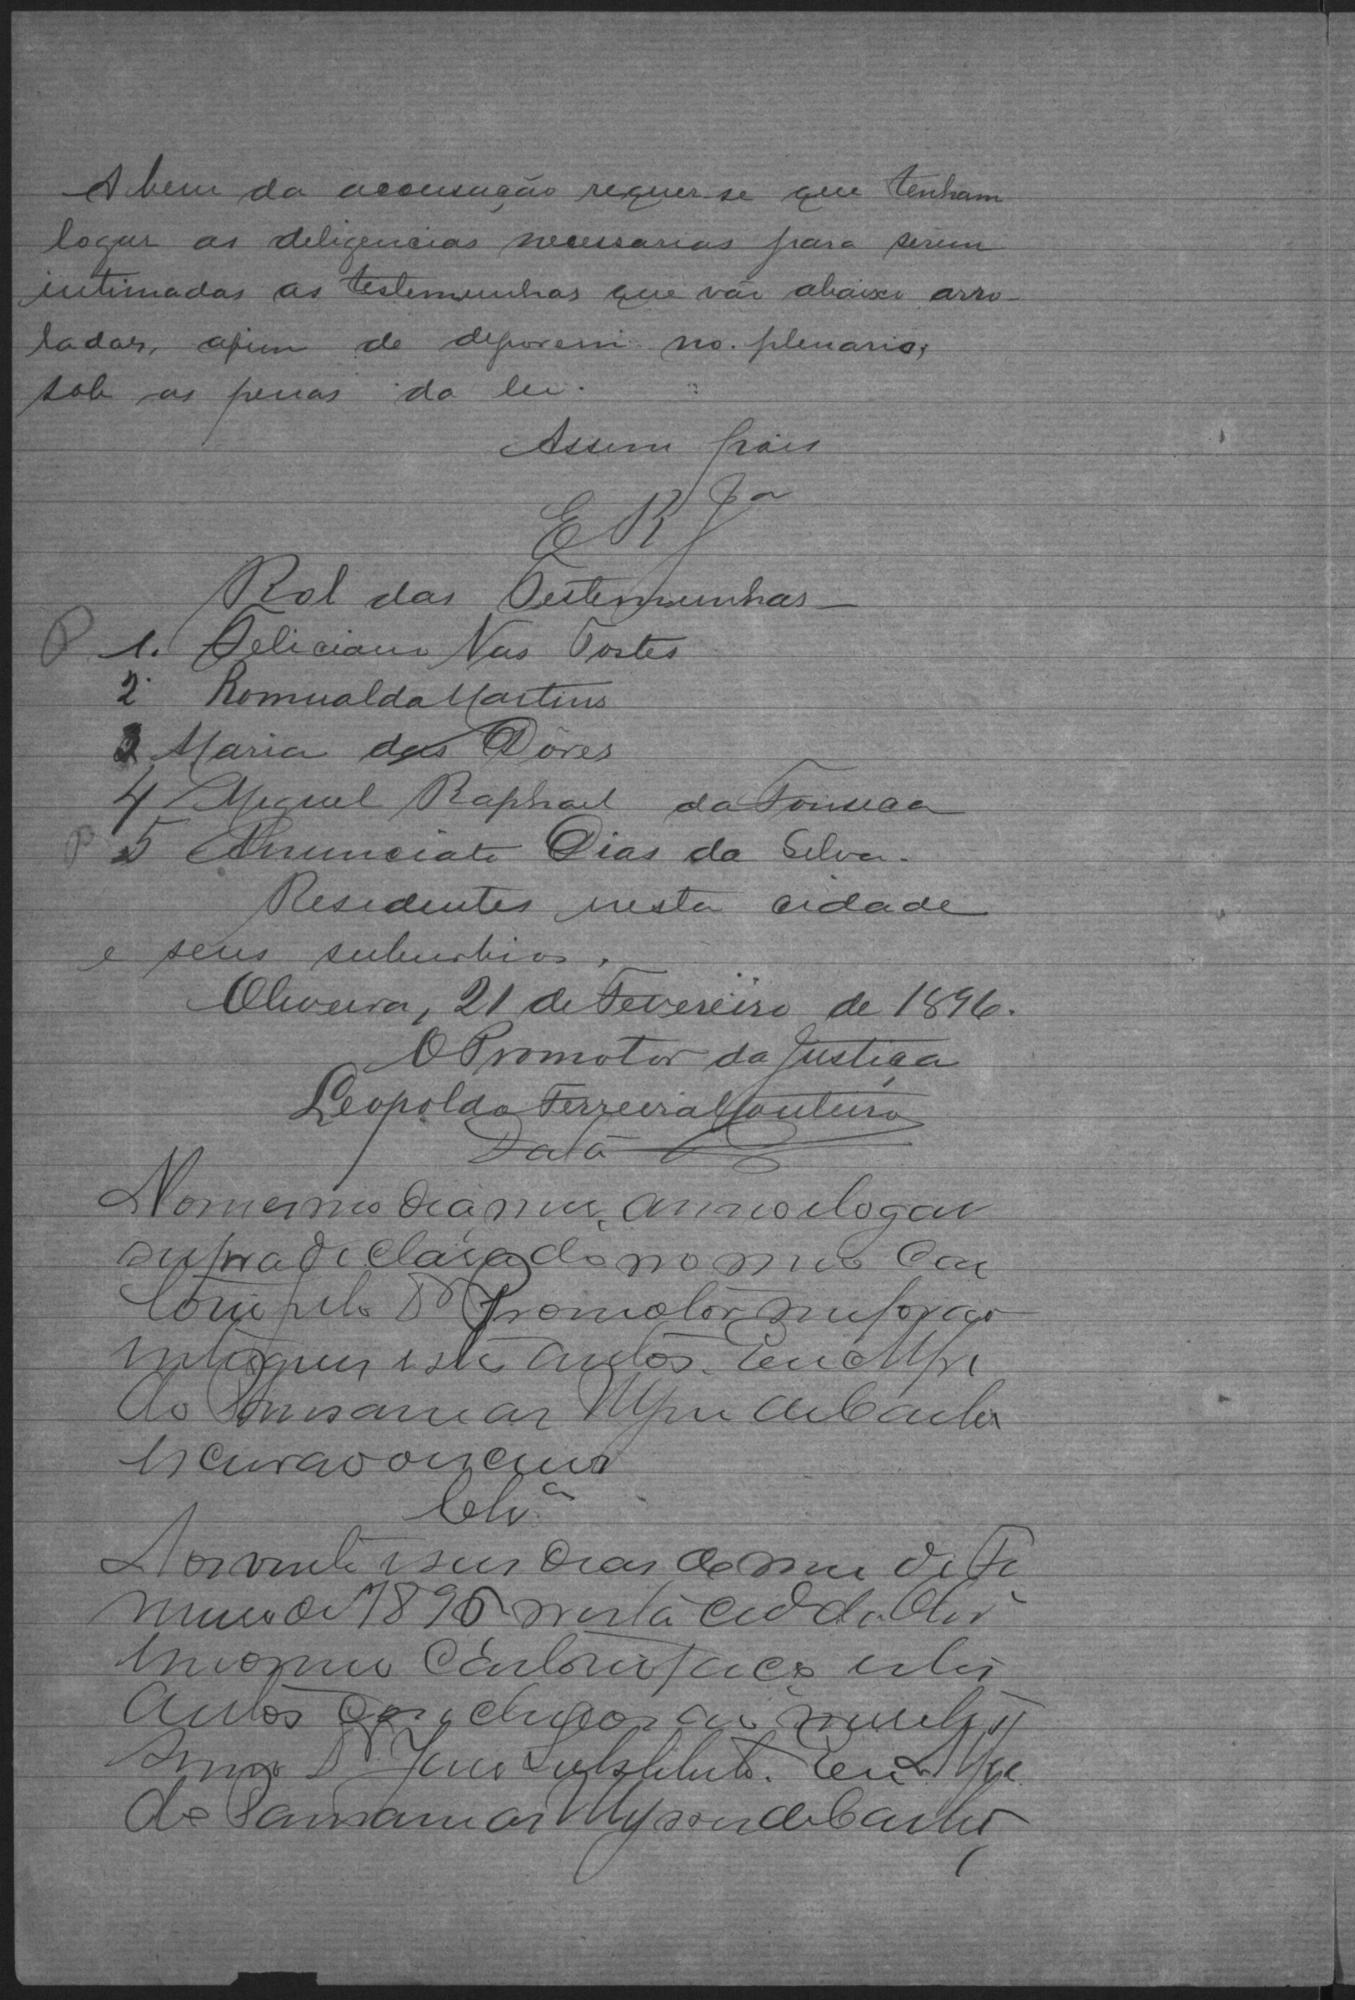 A bem da accusação requer-se que tenham
logar as deligencias necessarias para serem
intimadas as testemunhas que vão abaixo arro-
ladas, afim de deporem no plenario,
sob as penas da lei.
Assim pois
E R Jª
Rol das Testemunhas
P 1. Feliciano Vas Tostes
2 Romualda Martins
3 Maria das Dôres
4 Miguel Raphael da Fonseca
P 5 Annunciato Dias da Silva.
Residentes nesta cidade
e seus suburbios.
Oliveira, 21 de Fevereiro de 1896.
O Promotor da Justiça
Leopoldo Ferreira Monteiro
Data
No mesmo dia, mes, anno e logar
supra declarado no meu Car
torio pelo Dr Promotor me forão
entregues estes autos. Eu
do de Castro
escrivão o escrevi
Clsª
Aos vinte e seis dias do mes de Fe
vereiro de 1896 nesta cidde de Oliv
em o meu Cartorio faço estes
autos conclusos ao
Dr Juiz Substituto. Eu
do de Castro